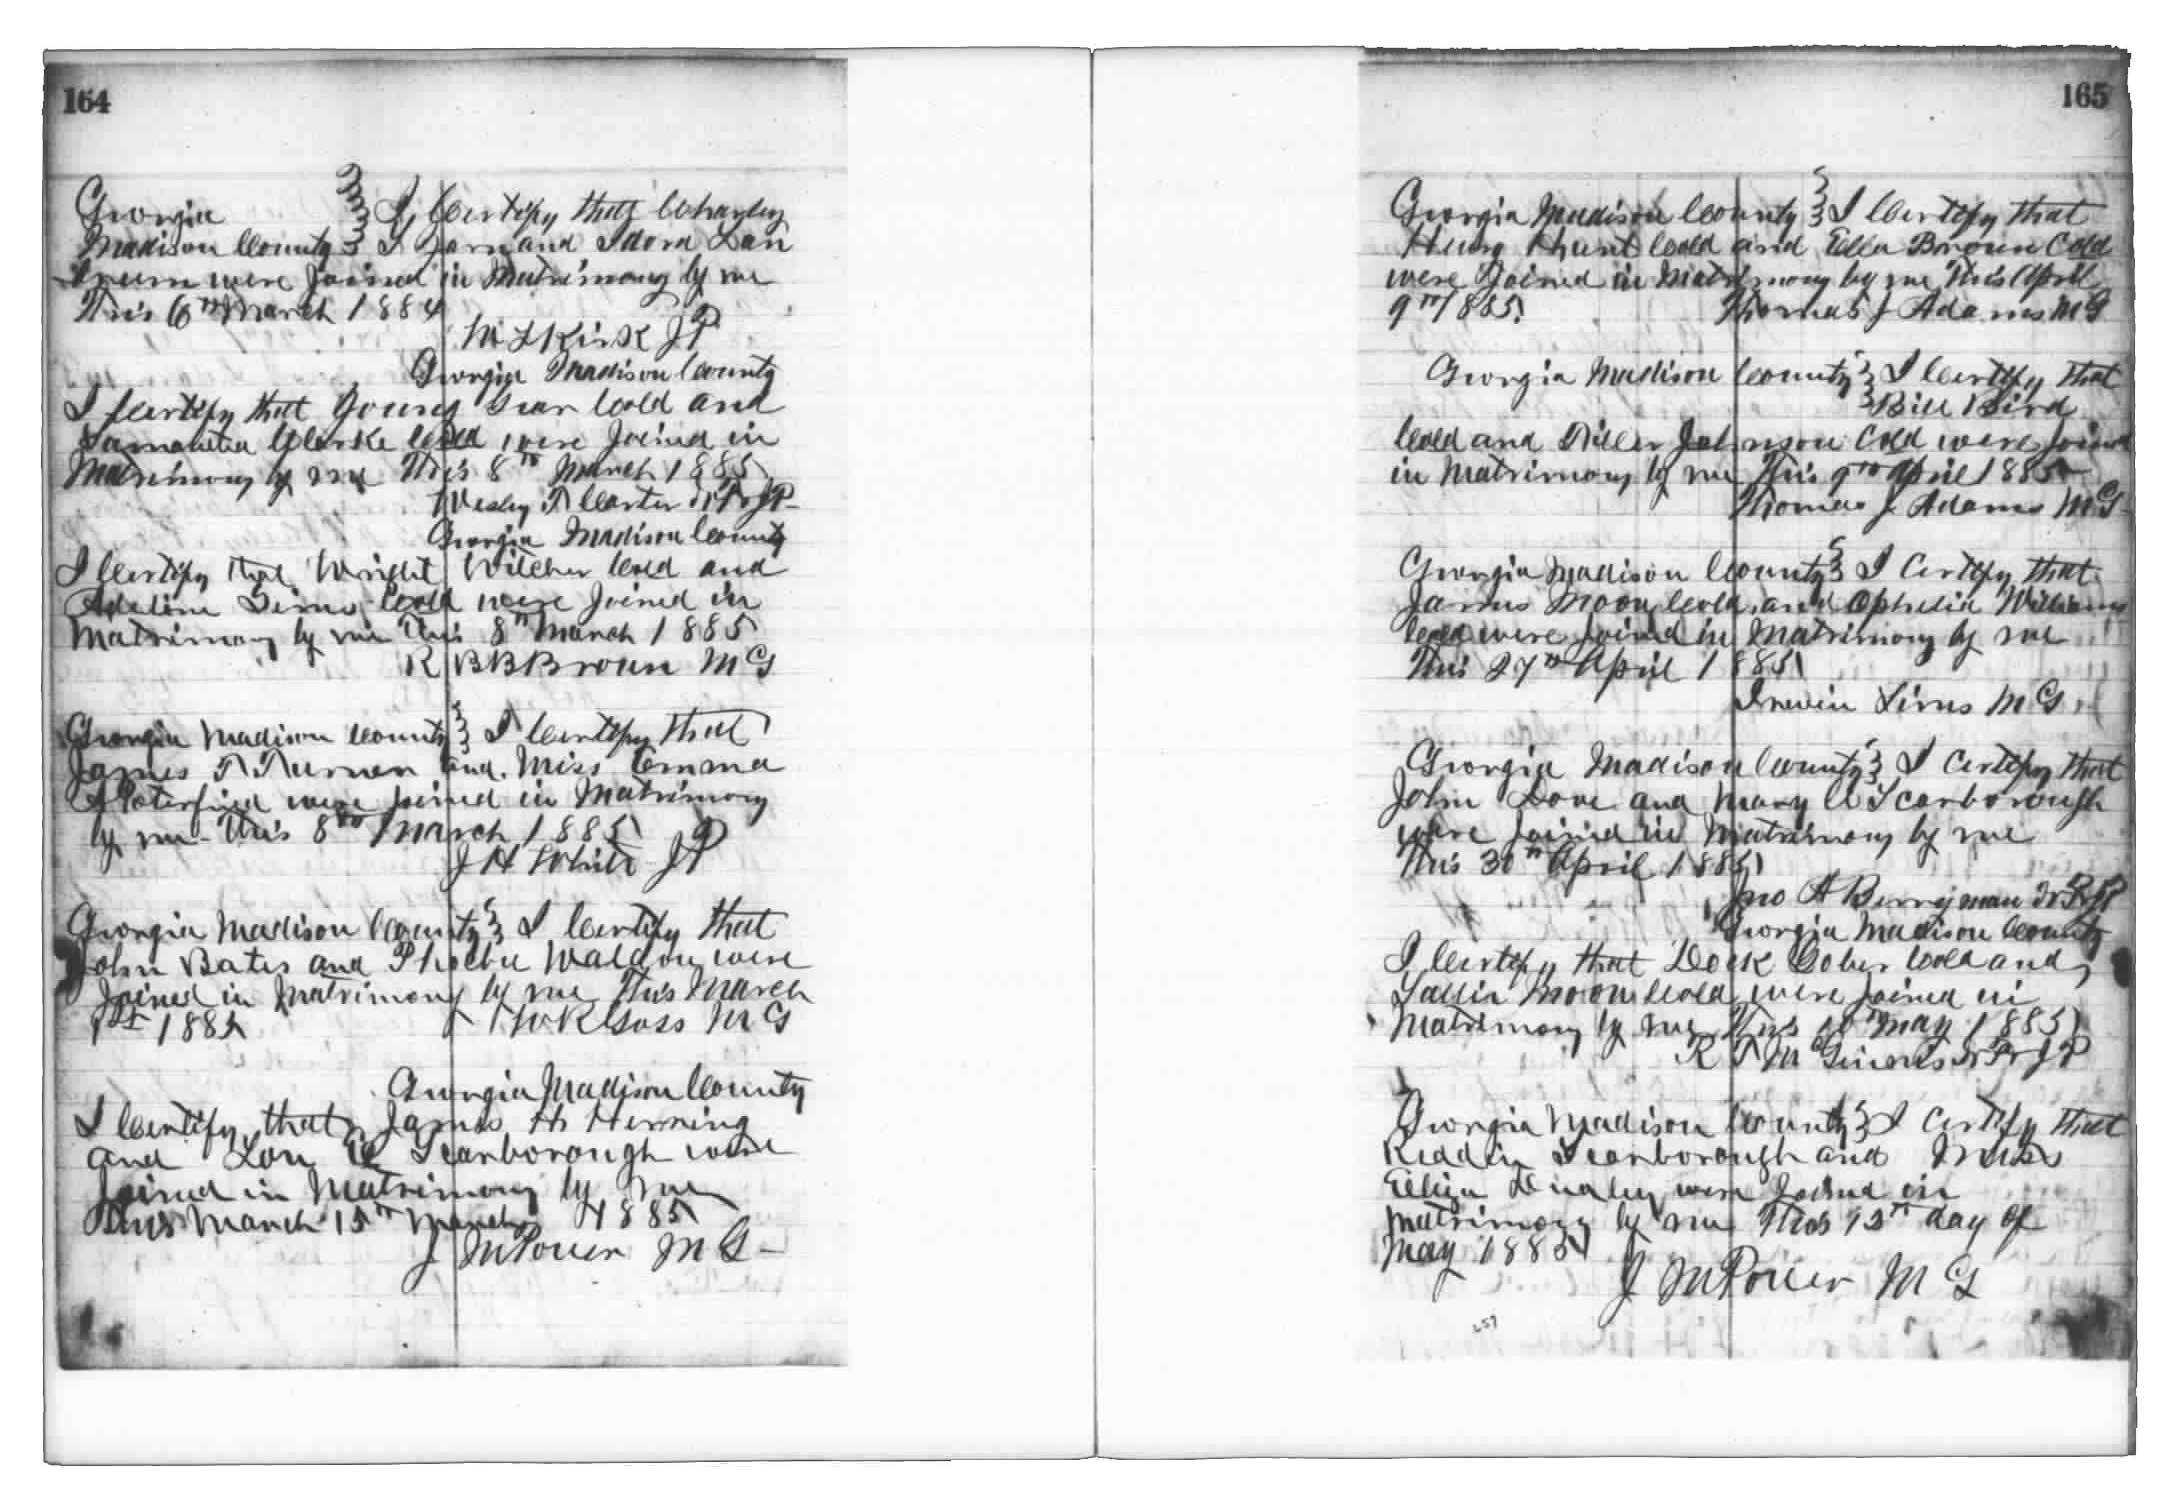 164
Georgia I Certify that Charley
Madison County and Idora Lan
were Joined in Matrimony by me
This 6th March 1884
M L Kirk JP
Georgia Madison County
I Certify that Young Cold and
Samantha Clarke Cold were Joined in
Matrimony by me This 8th March 1885
Wesley T Carter JP
Georgia Madison County
I Certify that Wright Witcher Cold and
Adeline Cold were Joined in
Matrimony by me This 8th March 1885
R B B Brown MG
Georgia Madison County I Certify that
James T Turner and Miss Emma
were Joined in Matrimony
by me This 8th March 1885
J H White JP
Georgia Madison County I Certify that
John Bates and Phoebe were
Joined in Matrimony by me This March
1st 1885
W R Goss MG
Georgia Madison County
I Certify that James H Herring
and Lou Scarborough were
Joined in Matrimony by me
This March 15th March 1885
J M Power MG
165
Georgia Madison County I Certify that
Cold and Ella Brown Cold
were Joined in Matrimony by me This April
9th 1885
Thomas J Adams MG
Georgia Madison County I Certify that
Bill Bird
Cold and Johnson Cold were Joined
in Matrimony by me This 9th April 1885
Thomas J Adams MG
Georgia Madison County I Certify that
James Moon Cold and Ophelia Williams
Cold were Joined in Matrimony by me
This 27th April 1885
Sims MG
Georgia Madison County I Certify that
John Love and Mary A Scarborough
were Joined in Matrimony by me
This 30th April 1885
Jno A Berryman
Georgia Madison County
I Certify that Dock Gober Cold and
Sallie Moon Cold were Joined in
Matrimony by me This 10th May 1885
R T M JP
Georgia Madison County I Certify that
Reddin Scarborough and Miss
were Joined in
Matrimony by me This day of
May 1885
J M Power MG